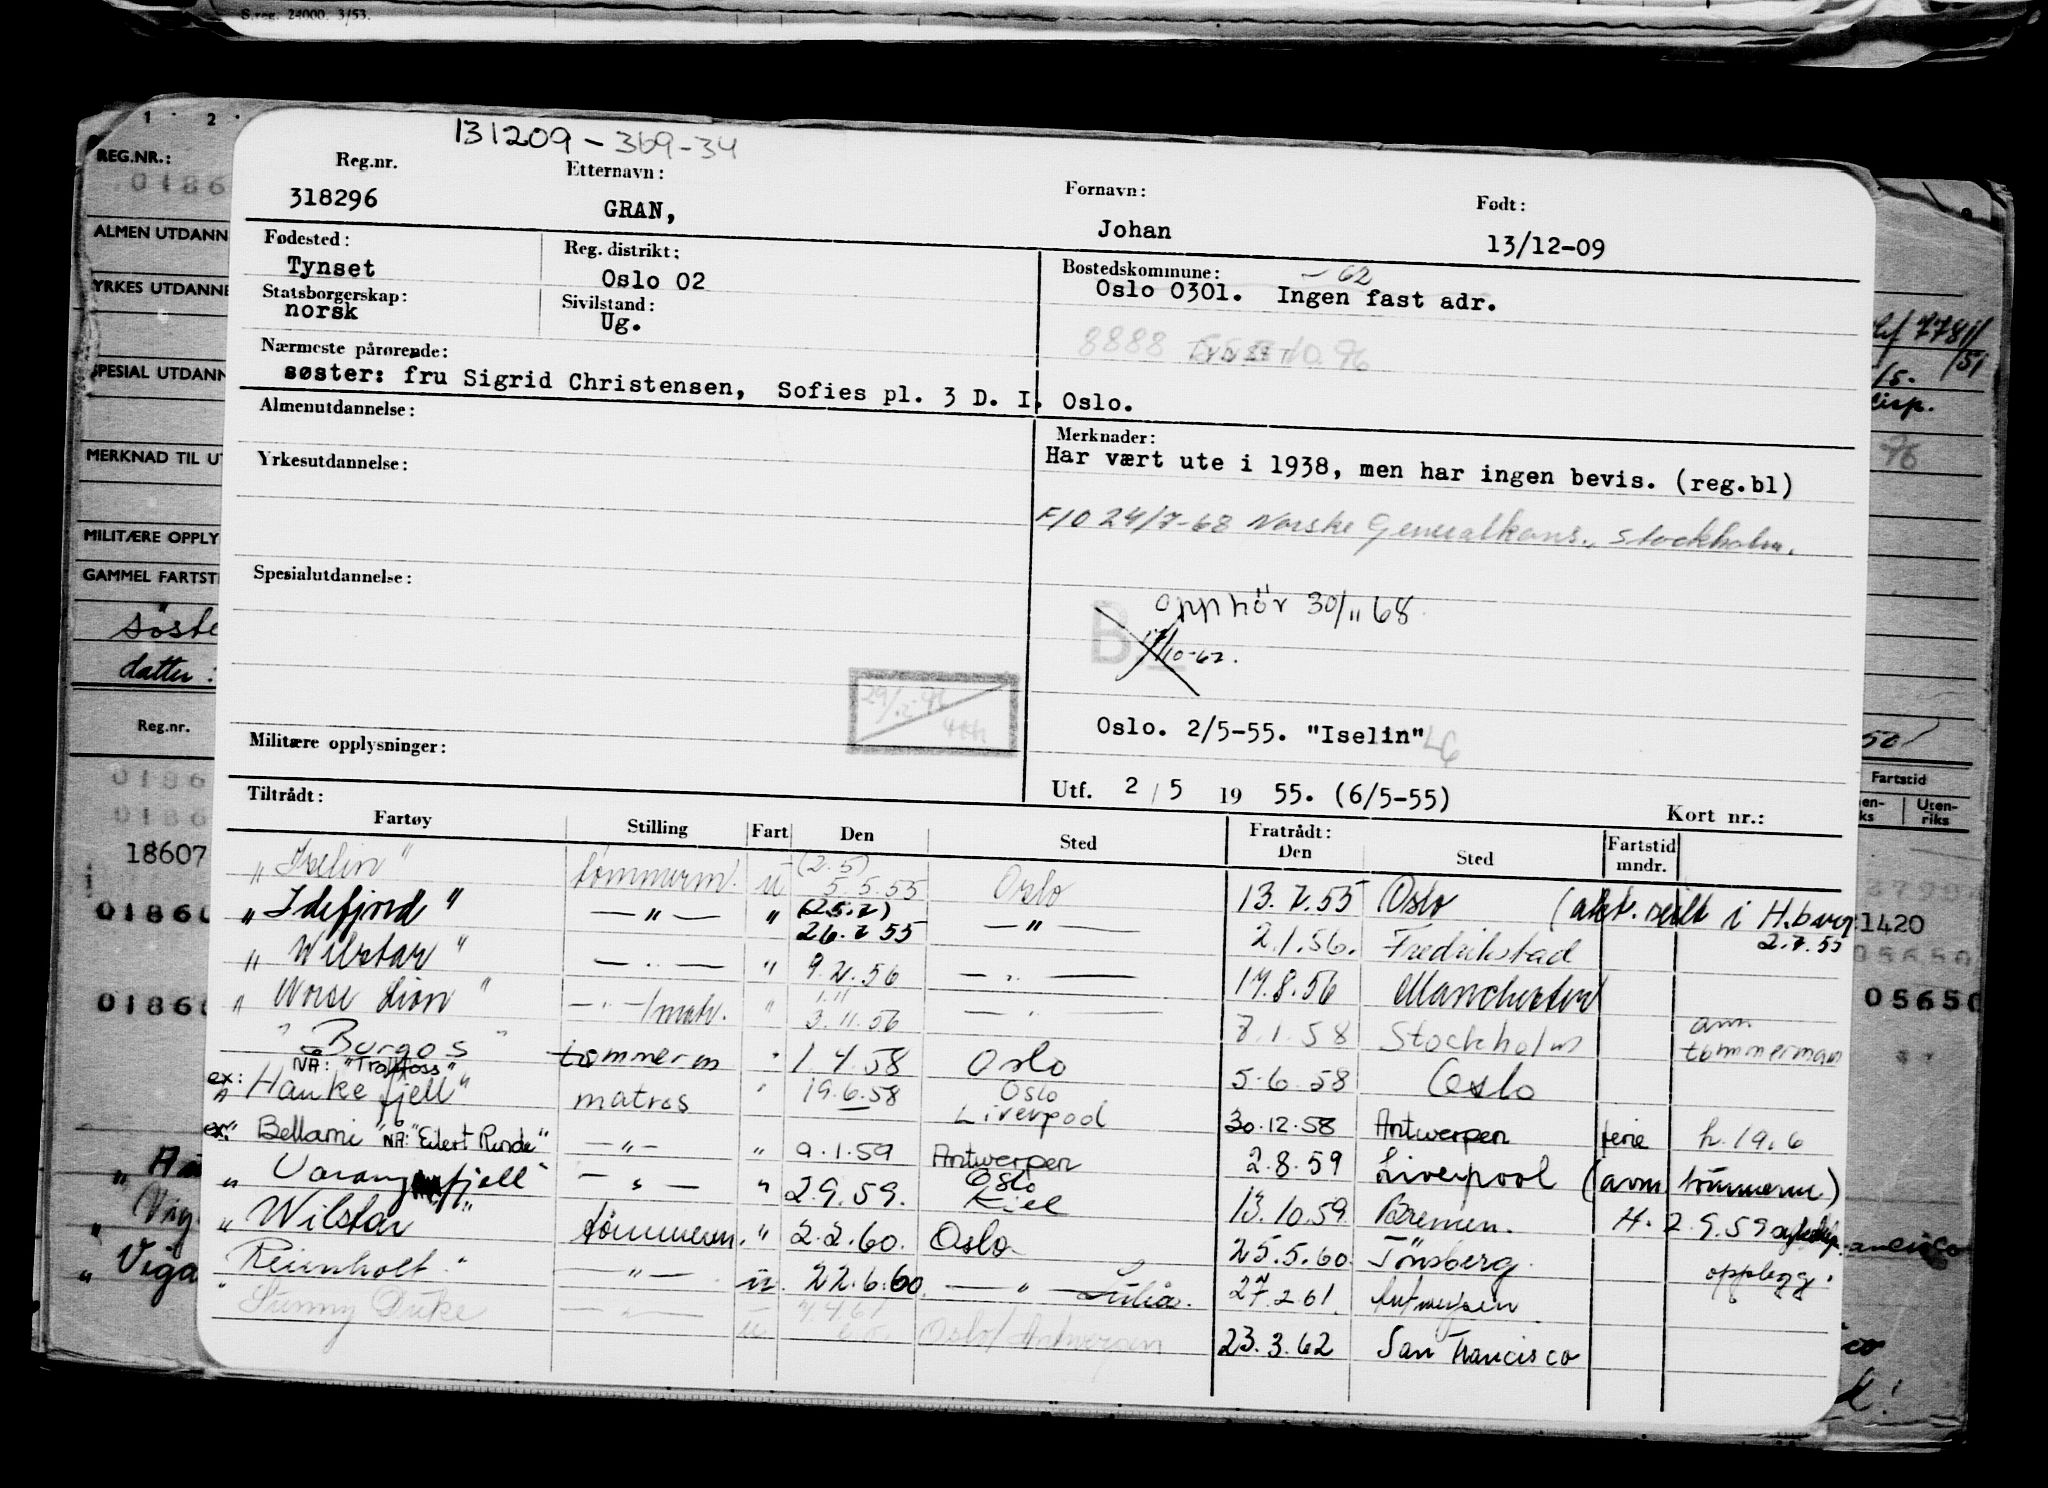 S.reg. 24000. 3/53.
1 2
REG.NR.:
0186
ALMEN UTDANN
YRKES UTDANNE
SPESIAL UTDANN
MERKNAD TIL UT
MILITÆRE OPPLY
GAMMEL FARTST
søste
datter :
Reg.nr.
0186
0186
18607
0186
0186
131209 - 369-34
Reg.nr. Etternavn: Fornavn: Født:
318296 GRAN, Johan 13/12-09
Fødested: Reg. distrikt: Bostedskommune: - 62
Tynset Oslo 02 Oslo 0301. Ingen fast adr.
Statsborgerskap: Sivilstand:
norsk Ug.
8888
Nærmeste pårørende:
søster: fru Sigrid Christensen, Sofies pl. 3 D. I. Oslo.
Almenutdannelse: Merknader:
Har vært ute i 1938, men har ingen bevis. (reg.bl)
Yrkesutdannelse:
F/O 24/7-68 Norske Generalkons., Stockholm.
Spesialutdannelse:
opphör 30/11 68.
B
17/10-62.
Oslo. 2/5-55. "Iselin"
Militære opplysninger:
Utf. 2/5 19 55. (6/5-55)
Kort nr.:
Tiltrådt: Fratrådt:
Fartøy Stilling Fart Den Sted Den Sted Fartstid mndr.
"Iselin" tømmerm. u (2.5) 5.5.55 Oslo 13.7.55 Oslo (akt. seilt i H.burg 2.7.55
"Idefjord" — " — " (25.7) 26.7.55 — " — 2.1.56. Fredrikstad
"Wilstar" — " — " 9.2.56 — " — 17.8.56 Manchester
"Norse Lion" — " —/matr. " 1.11 3.11.56 — " — 7.1.58 Stockholm avm. tømmerman
"Burgos" tømmerm " 1.4.58 Oslo 5.6.58 Oslo
NA: "Trolfoss"
ex: "Haukefjell" matros " 19.6.58 Oslo Liverpool 30.12.58 Antwerpen ferie h. 19.6
ex: "Bellami" NA: "Eilert Rinde" — " — " 9.1.59 Antwerpen 2.8.59 Liverpool (avm tömmerm)
"Varangfjell" — " — " 2.9.59. Oslo Kiel 13.10.59 Bremen. H. 2.9.59
"Wilstar" tømmerm. " 2.2.60. Oslo 25.5.60. Tönsberg. opplegg.
"Reinholt" — " — u 22.6.60. — " — 27.2.61. Antwerpen
"Sunny Duke — " — u 7.4.61 Oslo/Antwerpen 23.3.62 San Francisco
7781/
/51
/5.
disp.
96
50
Fartstid
Uten-
riks
1420
05650
05650